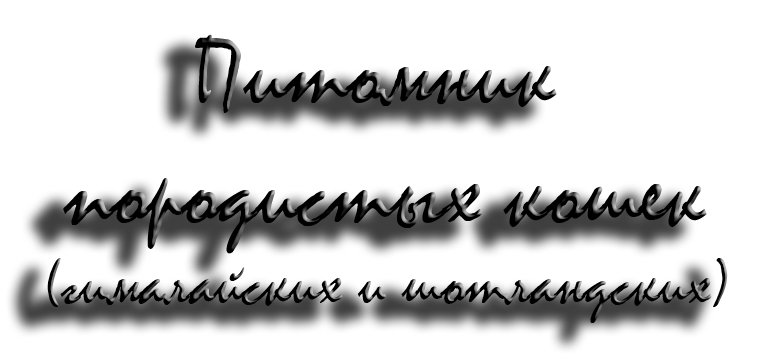 Питомник
породистых кошек
(гималайских и шотландских)